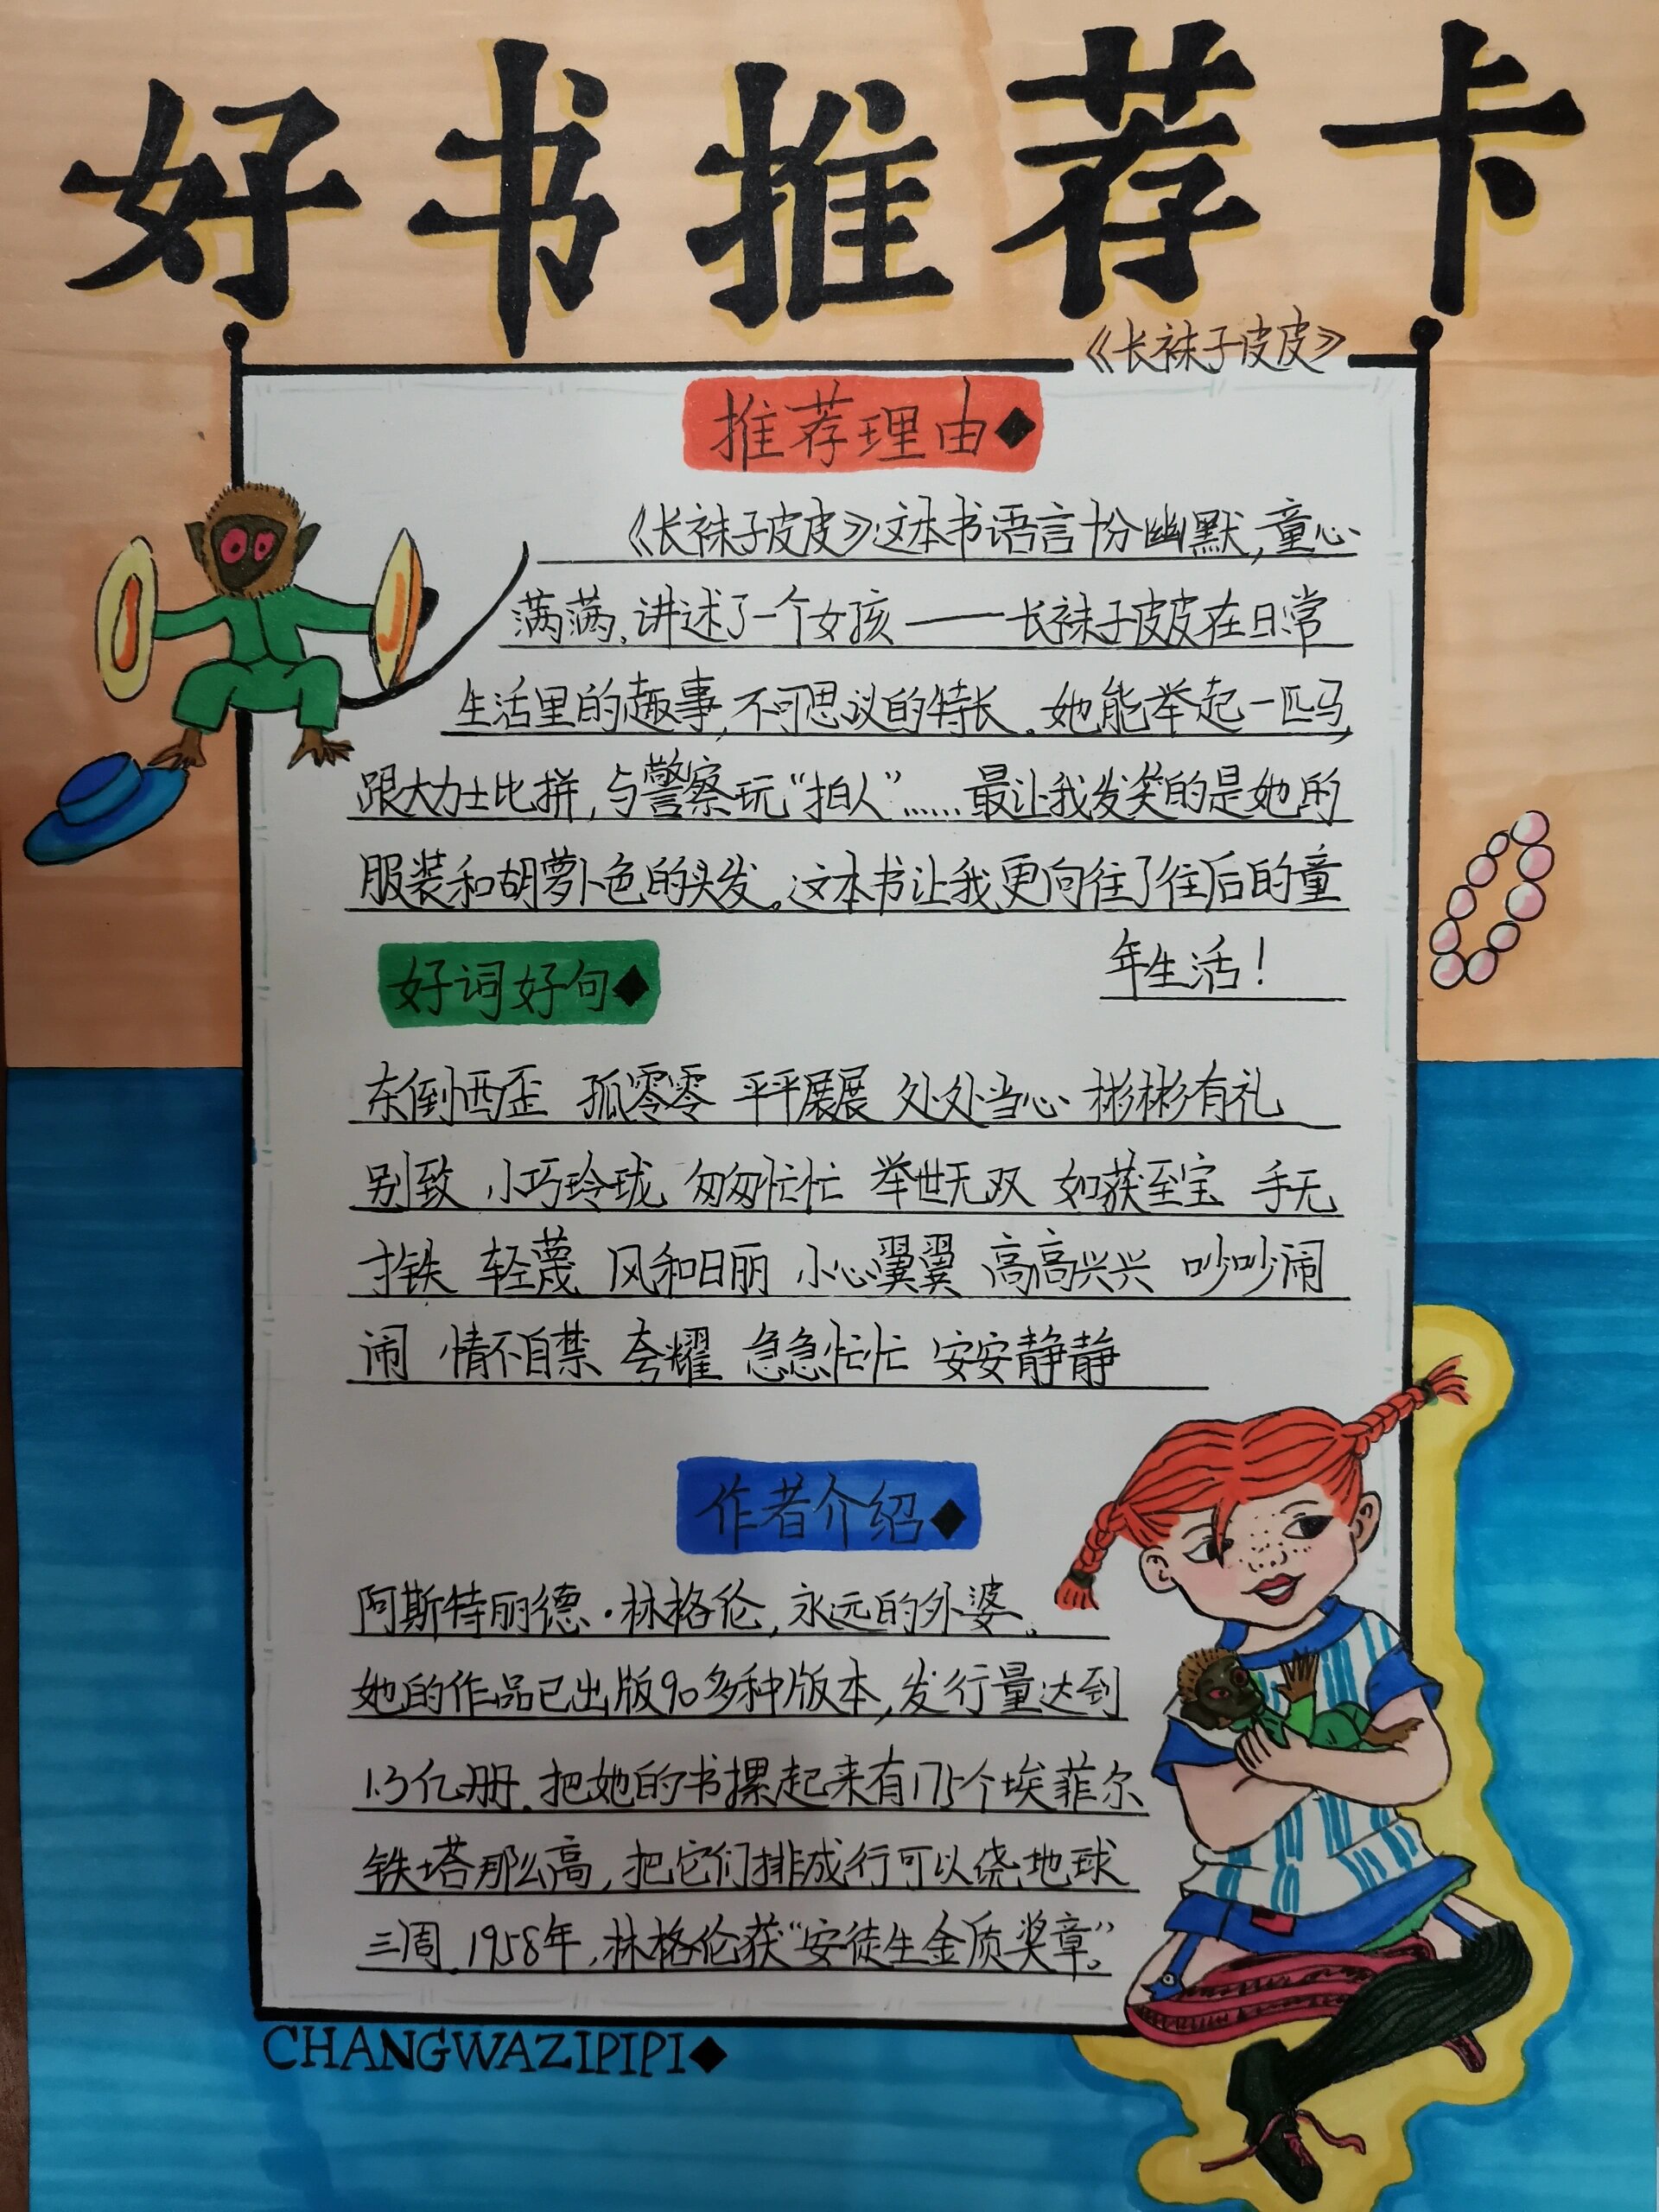 好书推荐卡
《长袜子皮皮》
推荐理由◆
《长袜子皮皮》这本书语言十分幽默,童心
满满,讲述了一个女孩——长袜子皮皮在日常
生活里的趣事,不可思议的特长。她能举起一匹马,
跟大力士比拼,与警察玩“拍人”......最让我发笑的是她的
服装和胡萝卜色的头发。这本书让我更向往了往后的童
年生活!
好词好句◆
东倒西歪 孤零零 平平展展 处处当心 彬彬有礼
别致 小巧玲珑 匆匆忙忙 举世无双 如获至宝 手无
寸铁 轻蔑 风和日丽 小心翼翼 高高兴兴 吵吵闹
闹 情不自禁 夸耀 急急忙忙 安安静静
作者介绍◆
阿斯特丽德·林格伦,永远的外婆。
她的作品已出版90多种版本,发行量达到
1.3亿册.把她的书摞起来有175个埃菲尔
铁塔那么高,把它们排成行可以绕地球
三周.1958年,林格伦获“安徒生金质奖章”。
CHANGWAZIPIPI◆